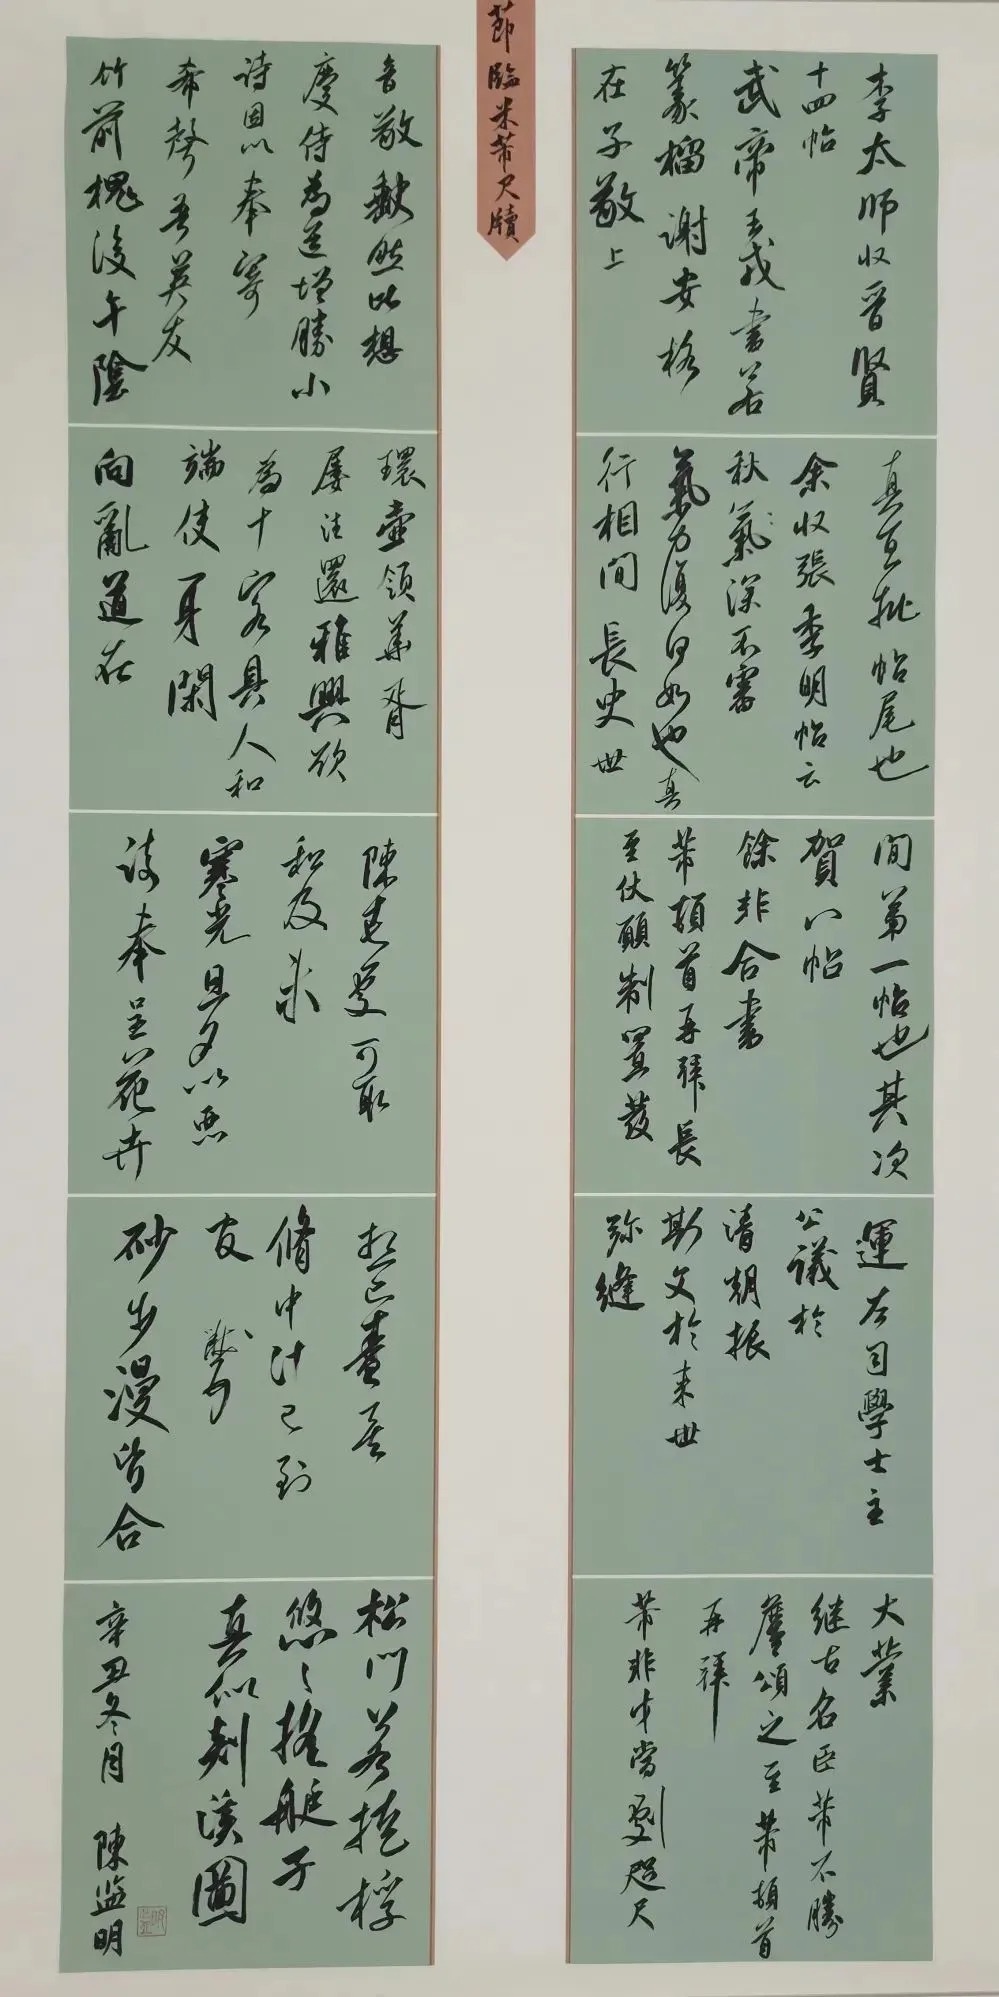 節臨米芾尺牘
李太師收晉賢
十四帖
武帝王戎書若
篆籀謝安格
在子敬上
真宜批帖尾也
余收張季明帖云
秋氣深不審
氣力復何如也真
行相間長史世
間第一帖也其次
賀八帖
餘非合書
芾頓首再拜長
至伏願制置發
運左司學士主
公議於
清朝振
斯文於来世
弥縫
大業
继古名臣芾不勝
詹頌之至芾頓首
再拜
芾非才當劇咫尺
音敬歎無以想
慶侍為道增勝小
詩因以奉寄
希聲吾英友
竹前槐後午陰
環壺領華胥
屢注還雅興欲
為十客具人和
端使身閑
向亂道在
陳老處可取
和及未
寒光旦夕以惡
詩奉呈花卉
想已盡善
脩中計已到
友
砂步漫皆合
松門若挠桴
悠〻摇艇子
真似剡溪圖
辛丑冬月 陳监明